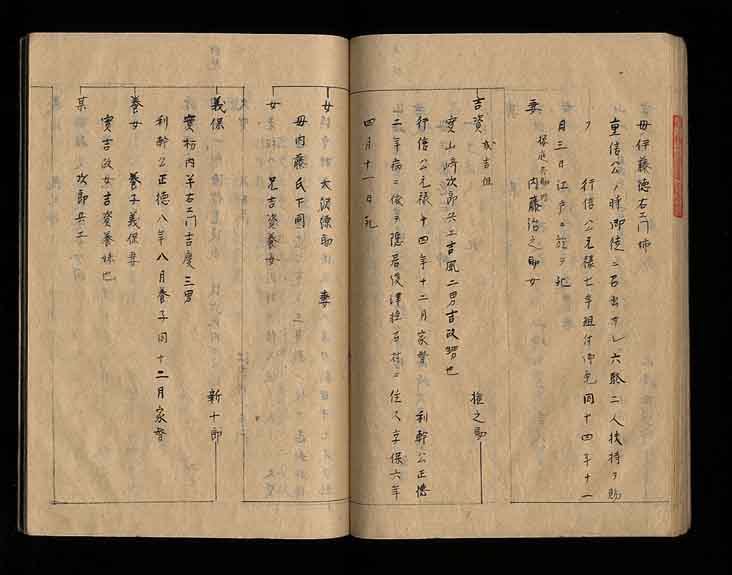 母伊藤徳右エ門姉
重信公ノ時御徒ニ召出サレ六駄二人扶持ヲ賜
フ 行信公元禄七年組付御免同十四年十一
月三日江戸ニ於テ死
妻 内藤治之助女
吉資 或吉但 権之助
実山崎次郎兵エ吉風二男吉政甥也
行信公元禄十四年十二月家督 利幹公正徳
二年病ニ依テ隠居後澤捨石村ニ住ス享保六年
四月十一日死
女 大沢源助 妻
母内藤氏下同
女 兄吉資養女
義保 新十郎
実栃内半右エ門吉慶三男
利幹公正徳八年八月養子同十二月家督
養女 養子義保妻
実吉政女吉資養妹也
某 次郎兵エ